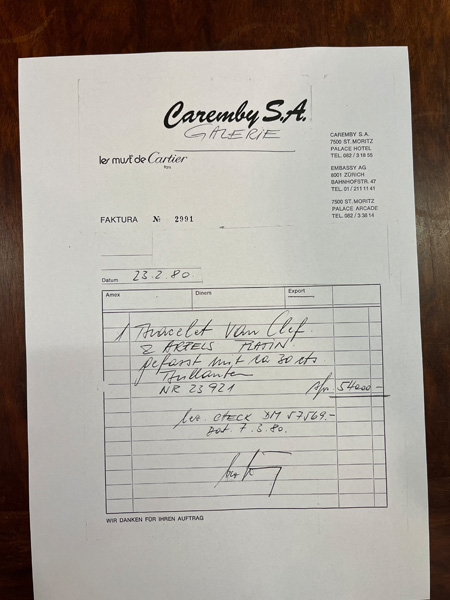 Caremby S.A.
GALERIE
les must de Cartier
CAREMBY S.A.
7500 ST. MORITZ
PALACE HOTEL
TEL. 082 / 3 18 55
EMBASSY AG
8001 ZÜRICH
BAHNHOFSTR. 47
TEL. 01 / 211 11 41
7500 ST. MORITZ
PALACE ARCADE
TEL. 082 / 3 30 14
FAKTURA № 2991
Datum 23.2.80.
Amex Diners Export
1 Bracelet Van Clef
& ARPELS PLATIN
gefasst mit ca 80 cts
Brillanten
NR 23921 sfr. 54000.-
CHECK DM 57569.-
Dat. 7.3.80.
WIR DANKEN FÜR IHREN AUFTRAG